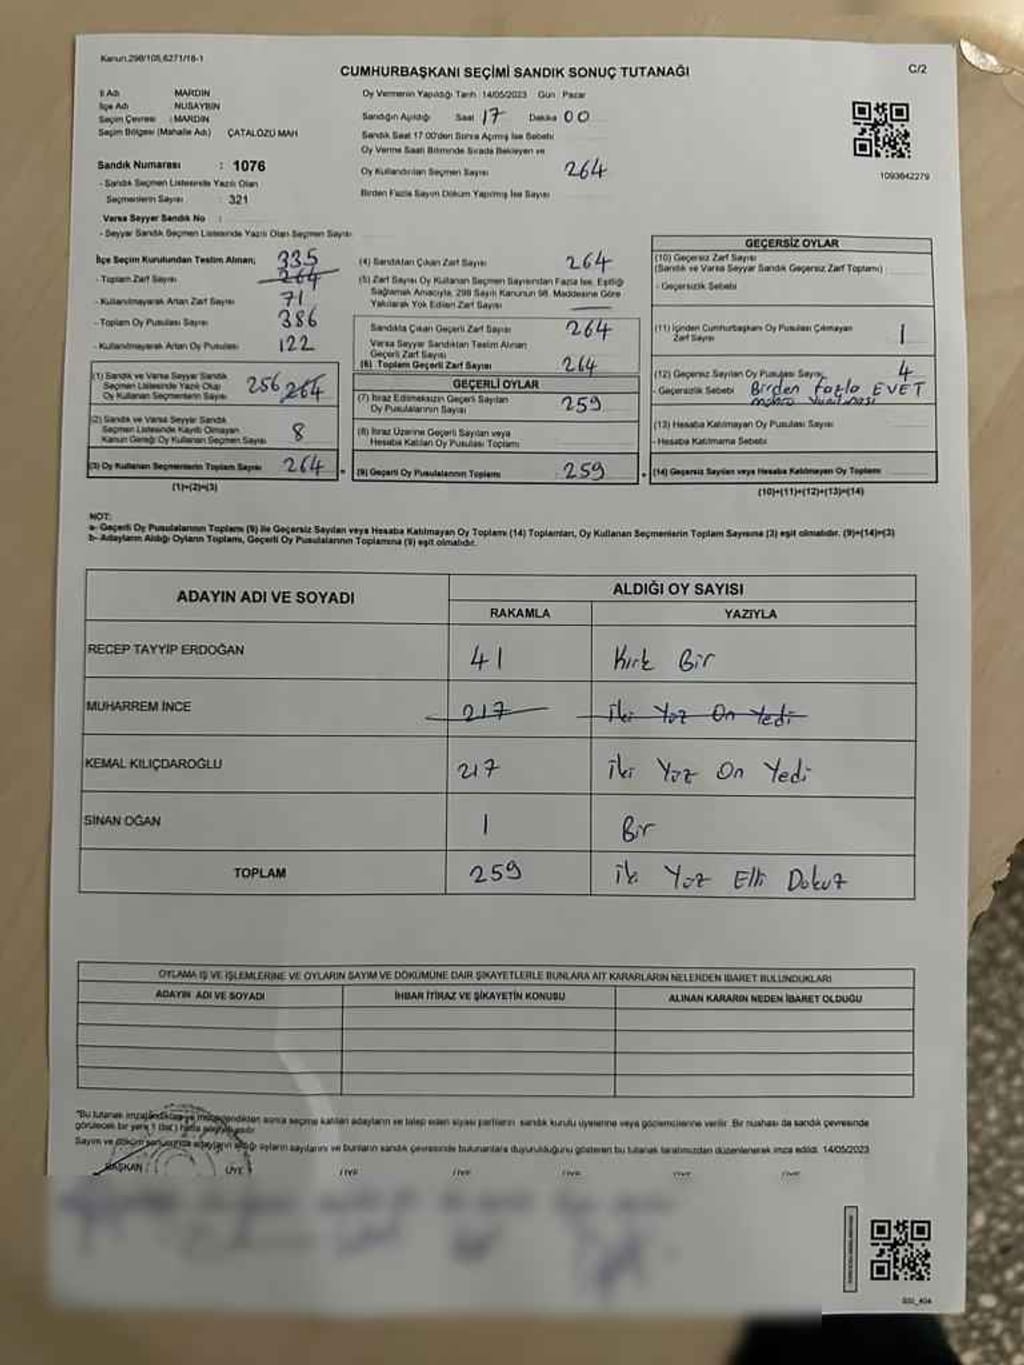 Kanun.298/105,6271/18-1
C/2
CUMHURBAŞKANI SEÇİMİ SANDIK SONUÇ TUTANAĞI
İl Adı MARDİN
İlçe Adı NUSAYBİN
Seçim Çevresi : MARDİN
Seçim Bölgesi (Mahalle Adı) ÇATALÖZÜ MAH
Sandık Numarası : 1076
- Sandık Seçmen Listesinde Yazılı Olan
Seçmenlerin Sayısı : 321
Varsa Seyyar Sandık No :
- Seyyar Sandık Seçmen Listesinde Yazılı Olan Seçmen Sayısı
Oy Vermenin Yapıldığı Tarih 14/05/2023 Gün Pazar
Sandığın Açıldığı Saat 17 Dakika 00
Sandık Saat 17.00'den Sonra Açılmış İse Sebebi
Oy Verme Saati Bitiminde Sırada Bekleyen ve
Oy Kullandırılan Seçmen Sayısı 264
Birden Fazla Sayım Döküm Yapılmış İse Sayısı
1093642279
İlçe Seçim Kurulundan Teslim Alınan; 335
- Toplam Zarf Sayısı 264
- Kullanılmayarak Artan Zarf Sayısı 71
- Toplam Oy Pusulası Sayısı 386
- Kullanılmayarak Artan Oy Pusulası 122
(1) Sandık ve Varsa Seyyar Sandık
Seçmen Listesinde Yazılı Olup
Oy Kullanan Seçmenlerin Sayısı 256 264
(2) Sandık ve Varsa Seyyar Sandık
Seçmen Listesinde Kayıtlı Olmayan
Kanun Gereği Oy Kullanan Seçmen Sayısı 8
(3) Oy Kullanan Seçmenlerin Toplam Sayısı 264
(1)+(2)=(3)
(4) Sandıktan Çıkan Zarf Sayısı 264
(5) Zarf Sayısı Oy Kullanan Seçmen Sayısından Fazla İse, Eşitliği
Sağlamak Amacıyla, 298 Sayılı Kanunun 98. Maddesine Göre
Yakılarak Yok Edilen Zarf Sayısı
Sandıkta Çıkan Geçerli Zarf Sayısı 264
Varsa Seyyar Sandıktan Teslim Alınan
Geçerli Zarf Sayısı
(6) Toplam Geçerli Zarf Sayısı 264
GEÇERLİ OYLAR
(7) İtiraz Edilmeksizin Geçerli Sayılan
Oy Pusulalarının Sayısı 259
(8) İtiraz Üzerine Geçerli Sayılan veya
Hesaba Katılan Oy Pusulası Toplamı
(9) Geçerli Oy Pusulalarının Toplamı 259
GEÇERSİZ OYLAR
(10) Geçersiz Zarf Sayısı
(Sandık ve Varsa Seyyar Sandık Geçersiz Zarf Toplamı)
- Geçersizlik Sebebi
(11) İçinden Cumhurbaşkanı Oy Pusulası Çıkmayan
Zarf Sayısı 1
(12) Geçersiz Sayılan Oy Pusulası Sayısı 4
- Geçersizlik Sebebi Birden fazla EVET
(13) Hesaba Katılmayan Oy Pusulası Sayısı
- Hesaba Katılmama Sebebi
(14) Geçersiz Sayılan veya Hesaba Katılmayan Oy Toplamı
(10)+(11)+(12)+(13)=(14)
NOT:
a- Geçerli Oy Pusulalarının Toplamı (9) ile Geçersiz Sayılan veya Hesaba Katılmayan Oy Toplamı (14) Toplamları, Oy Kullanan Seçmenlerin Toplam Sayısına (3) eşit olmalıdır. (9)+(14)=(3)
b- Adayların Aldığı Oyların Toplamı, Geçerli Oy Pusulalarının Toplamına (9) eşit olmalıdır.
ADAYIN ADI VE SOYADI ALDIĞI OY SAYISI
RAKAMLA YAZIYLA
RECEP TAYYİP ERDOĞAN 41 Kırk Bir
MUHARREM İNCE 217 İki Yüz On Yedi
KEMAL KILIÇDAROĞLU 217 İki Yüz On Yedi
SİNAN OĞAN 1 Bir
TOPLAM 259 İki Yüz Elli Dokuz
OYLAMA İŞ VE İŞLEMLERİNE VE OYLARIN SAYIM VE DÖKÜMÜNE DAİR ŞİKAYETLERLE BUNLARA AİT KARARLARIN NELERDEN İBARET BULUNDUKLARI
ADAYIN ADI VE SOYADI İHBAR İTİRAZ VE ŞİKAYETİN KONUSU ALINAN KARARIN NEDEN İBARET OLDUĞU
"Bu tutanak imzalandıktan ve mühürlendikten sonra seçime katılan adayların ve talep eden siyasi partilerin sandık kurulu üyelerine veya gözlemcilerine verilir. Bir nüshası da sandık çevresinde
görülecek bir yere 1 (bir) hafta
Sayım ve döküm sonucunda adayların aldığı oyların sayılarını ve bunların sandık çevresinde bulunanlara duyurulduğunu gösteren bu tutanak tarafımızdan düzenlenerek imza edildi. 14/05/2023
BAŞKAN ÜYE ÜYE ÜYE ÜYE ÜYE ÜYE